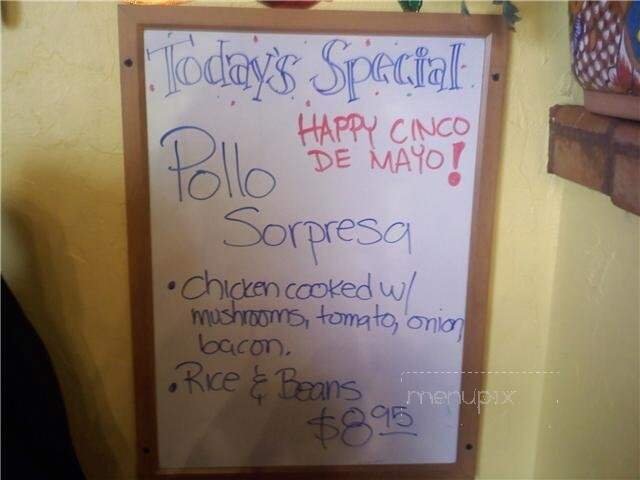 Today's Special
HAPPY CINCO
DE MAYO!
Pollo
Sorpresa
• Chicken cooked w/
mushrooms, tomato, onion,
bacon.
• Rice & Beans
$8.95
menupix